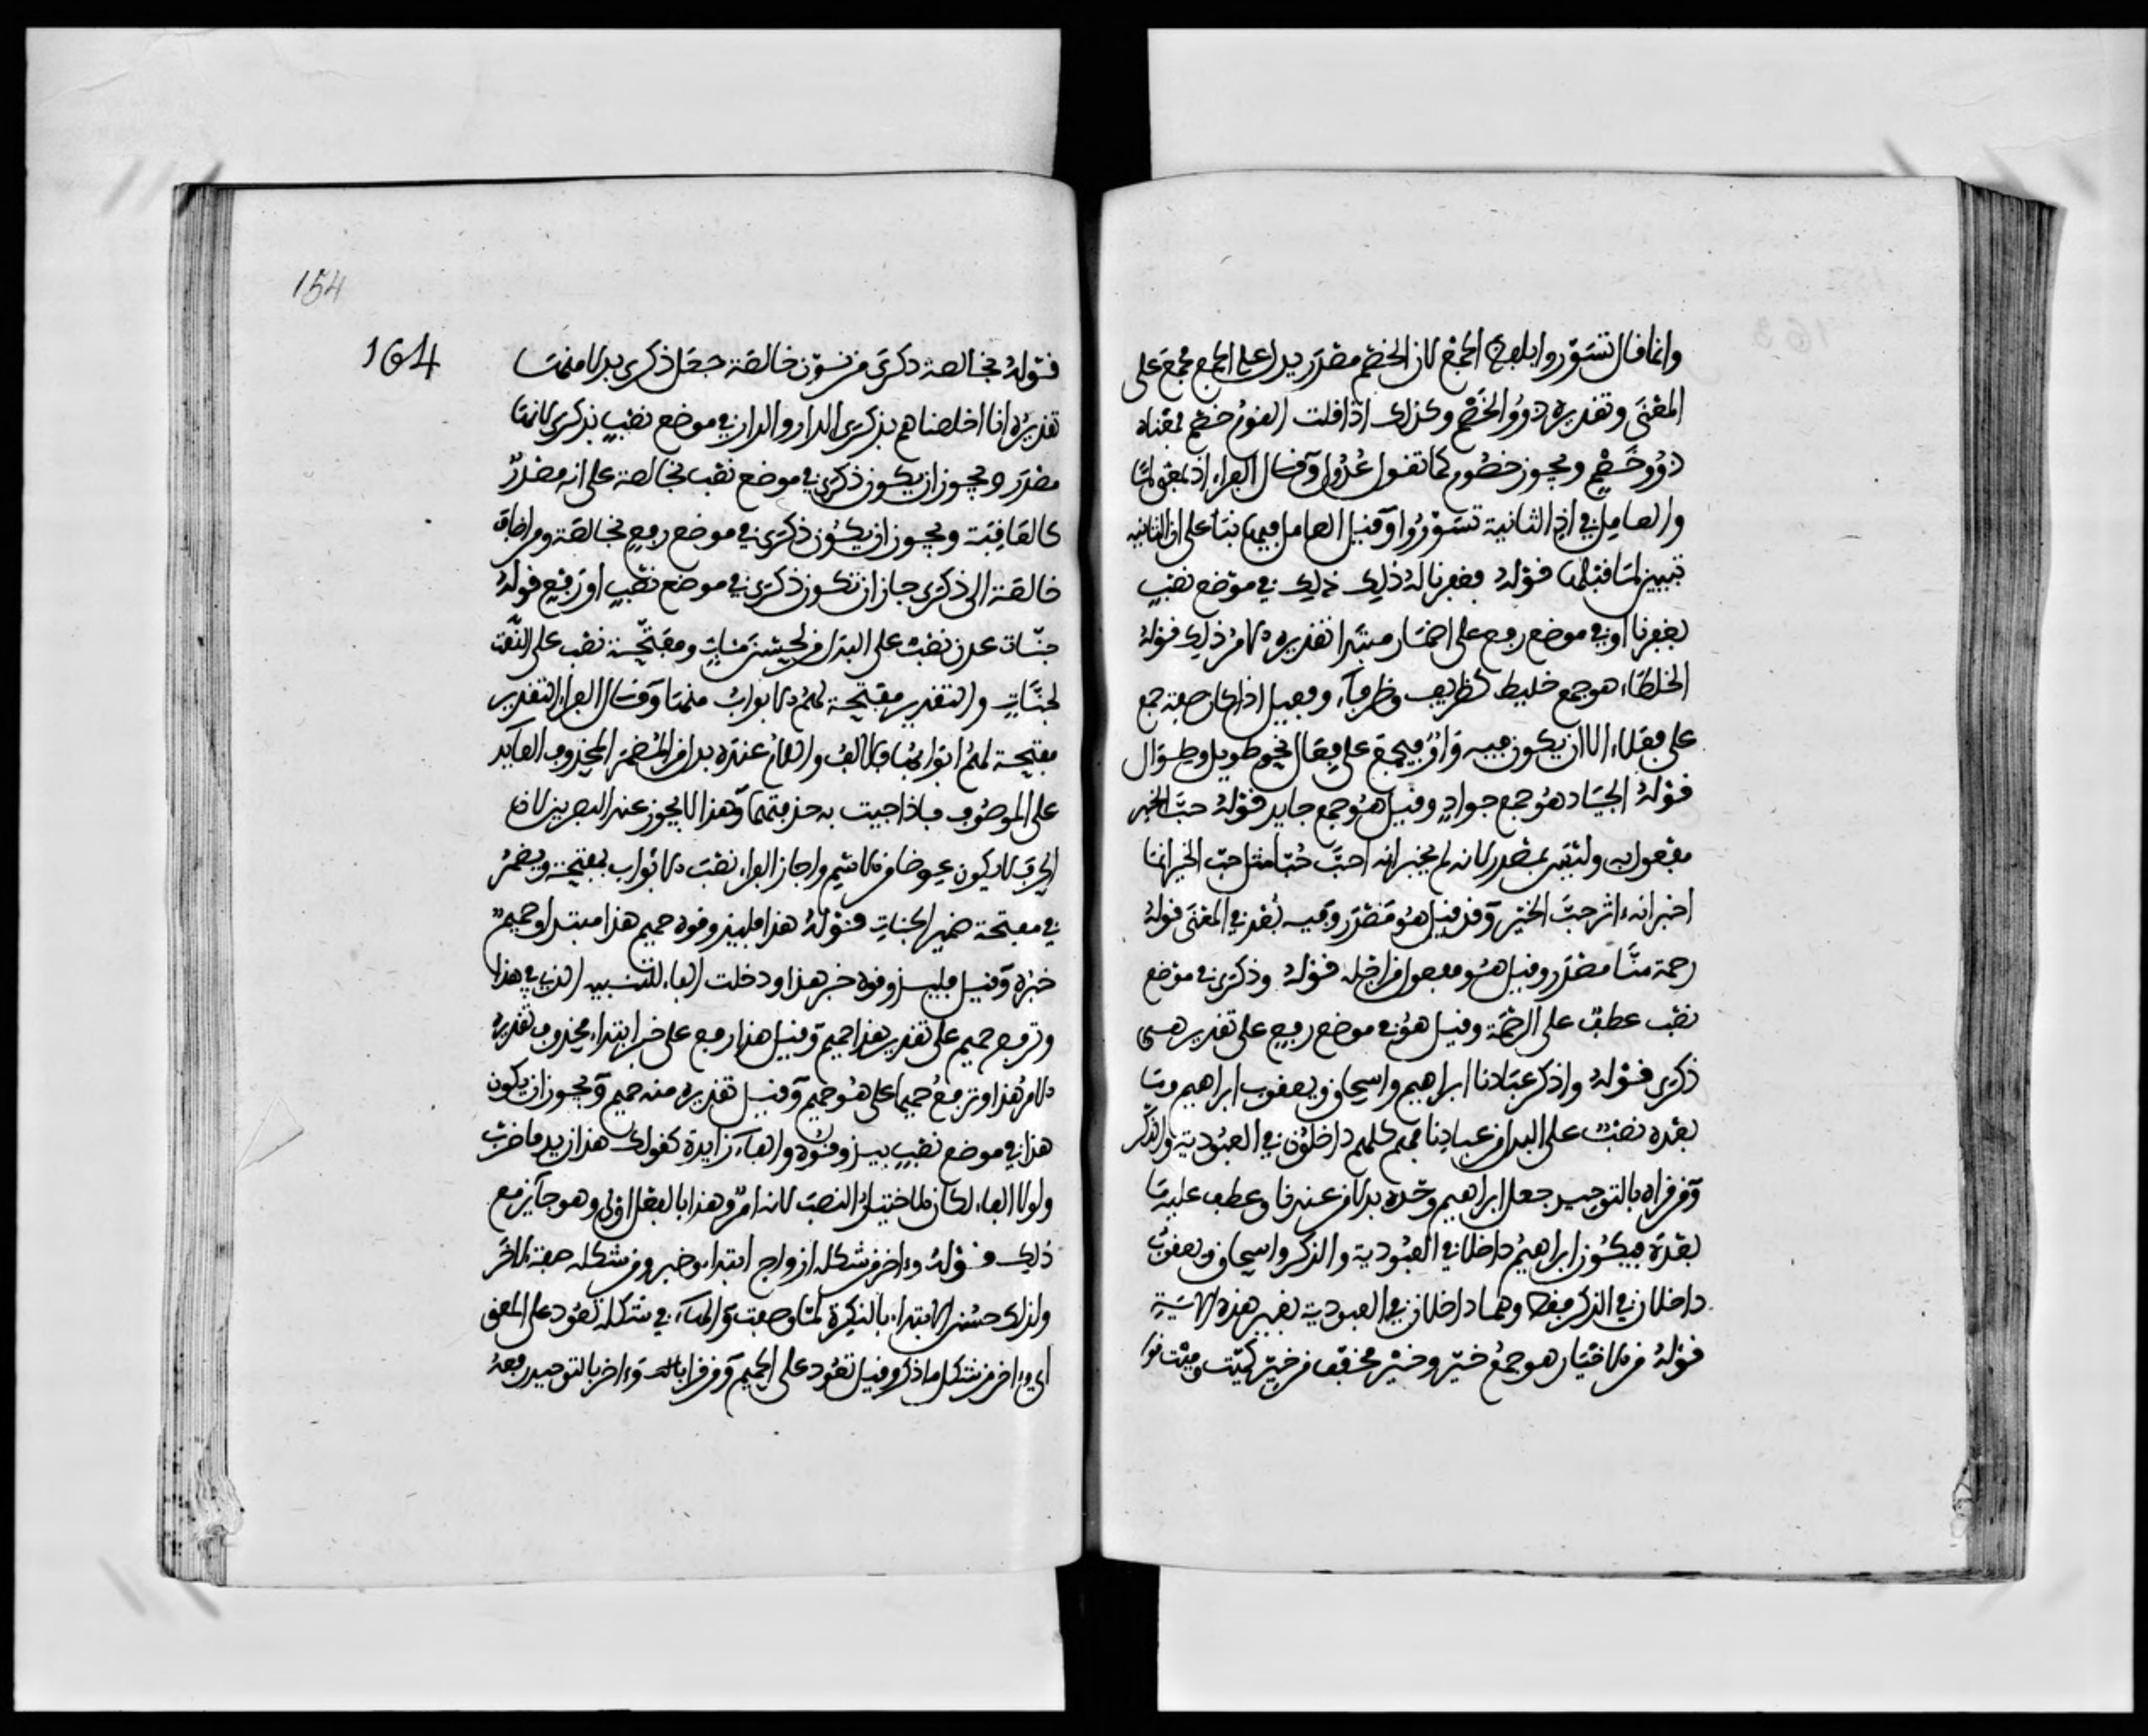 وانما قال تسوروا بلفظ الجمع لان الخصم مصدر يدل على الجمع فجمع على
المعنى وتقديره ذوو الخصم وكذلك اذا قلت القوم خصم فمعناه
ذوو خصم ويجوز خصوم كما تقول عدول وقال الفراء اذ بمعنى لما
والعامل في اذ الثانية تسوروا وقيل العامل فيها نبأ على ان الثانية
تبيين لما قبلها قوله فغفرنا له ذلك ذلك في موضع نصب
بغفرنا او في موضع رفع على اضمار مبتدا تقديره الامر ذلك قوله
الخلطاء هو جمع خليط كظريف وظرفاء وفعيل اذا كان صفة جمع
على فعلاء الا ان يكون فيه واو فيجمع على فعال نحو طويل وطوال
قوله الجياد هو جمع جواد وقيل هو جمع جايد قوله حب الخير
مفعول به وليس بمصدر لانه لم يخبر انه احب حبا مثل حب الخير انما
اخبر انه ءاثر حب الخير وقد قيل هو مصدر وفيه بعد في المعنى قوله
رحمة منا مصدر وقيل هو مفعول من اجله قوله وذكرى في موضع
نصب عطف على الرحمة وقيل هو في موضع رفع على تقدير هي
ذكرى قوله واذكر عبادنا ابراهيم واسحاق ويعقوب ابراهيم وما
بعده نصب على البدل من عبادنا فهم كلهم داخلون في العبودية والذكر
ومن قراه بالتوحيد جعل ابراهيم وحده بدلا من عبدنا وعطف عليه ما
بعده فيكون ابراهيم داخلا في العبودية والذكر واسحاق ويعقوب
داخلان في الذكر فقط وهما داخلان في العبودية بغير هذه الاية
قوله من الاخيار هو جمع خير وخير مخفف من خير كميت وميت
قوله بخالصة ذكرى من نون خالصة جعل ذكرى بدلا منها
تقديره انا اخلصناهم بذكرى الدار والدار في موضع نصب بذكرى لانها
مصدر ويجوز ان يكون ذكرى في موضع نصب بخالصة على انه مصدر
كالعاقبة ويجوز ان يكون ذكرى في موضع رفع بخالصة ومن اضاف
خالصة الى ذكرى جاز ان تكون ذكرى في موضع نصب او رفع قوله
جنات عدن نصب على البدل من لحسن مئاب ومفتحة نصب على النعت
لجنات والتقدير مفتحة لهم الابواب منها وقال الفراء التقدير
مفتحة لهم ابوابها فالالف واللام عنده بدل من المضمر المحذوف العائد
على الموصوف فاذا جيت به حذفتهما وهذا لا يجوز عند البصريين لان
الحرف لا يكون عوضا من الاسم واجاز الفراء نصب الابواب بمفتحة ويضمر
في مفتحة ضمير الجنات قوله هذا فليذوقوه حميم هذا مبتدا وحميم
خبره وقيل فليذوقوه خبر هذا ودخلت الفاء للتنبيه الذي في هذا
وترفع حميم على تقدير هذا حميم وقيل هذا رفع على خبر ابتداء محذوف تقديره
الامر هذا وترفع حميما على هو حميم وقيل تقديره منه حميم ويجوز ان يكون
هذا في موضع نصب بيذوقوه والفاء زايدة كقولك هذا زيد فاضرب
ولولا الفاء لكان الاختيار النصب لانه امر وهذا بالفعل اولى وهو جائز مع
ذلك قوله وءاخر من شكله ازواج ابتداء وخبر ومن شكله صفة لاخر
ولذلك حسن الابتداء بالنكرة لما وصفت والهاء في شكله تعود على المعنى
اي وءاخر من شكل ما ذكر وقيل تعود على الحميم ومن قرا وءاخر بالتوحيد رفعه
154
164